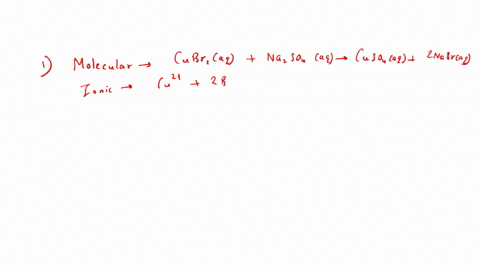 1) Molecular → CuBr₂(aq) + Na₂SO₄ (aq) → CuSO₄(aq) + 2NaBr(aq)
Ionic → Cu²⁺ + 2B